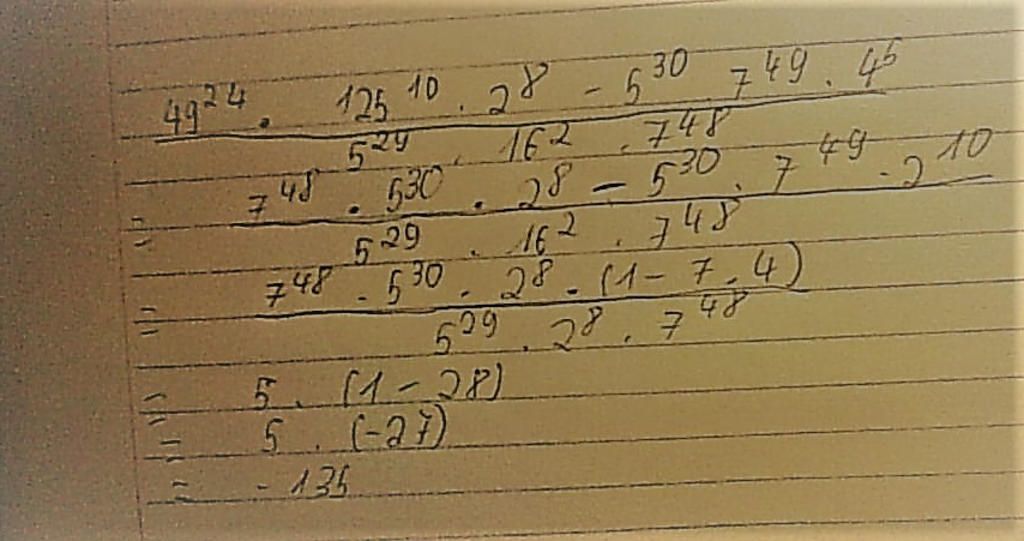 49²⁴ . 125¹⁰ . 2⁸ - 5³⁰ 7⁴⁹ . 4⁵
5²⁹ . 16² . 7⁴⁸
= 7⁴⁸ . 5³⁰ . 2⁸ - 5³⁰ . 7⁴⁹ . 2¹⁰
5²⁹ . 16² . 7⁴⁸
= 7⁴⁸ . 5³⁰ . 2⁸ . (1 - 7 . 4)
5²⁹ . 2⁸ . 7⁴⁸
= 5 . (1 - 28)
= 5 . (-27)
= -135